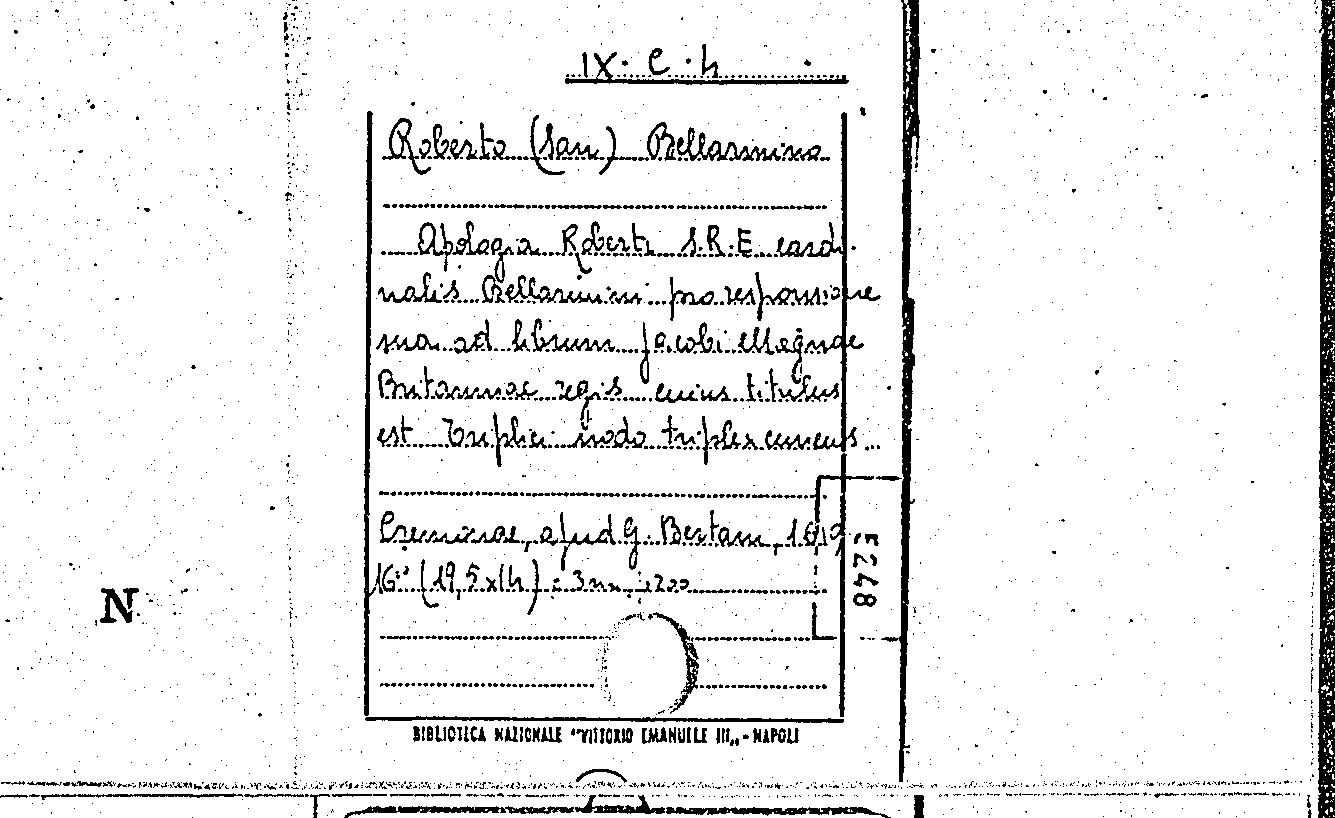 IX. C. h
Roberto (San) Bellarmino
Apologia Roberti S.R.E cardi
nalis Bellarmini pro responsione
sua ad librum Jacobi Magnae
Britannae regis cuius titulus
est Triplici nodo triplex cuneus..
Cremonae, apud G. Bertani, 1619
16° (19,5x14) : 3 nn
N
5248
BIBLIOTECA NAZIONALE "VITTORIO EMANUELE III„ - NAPOLI